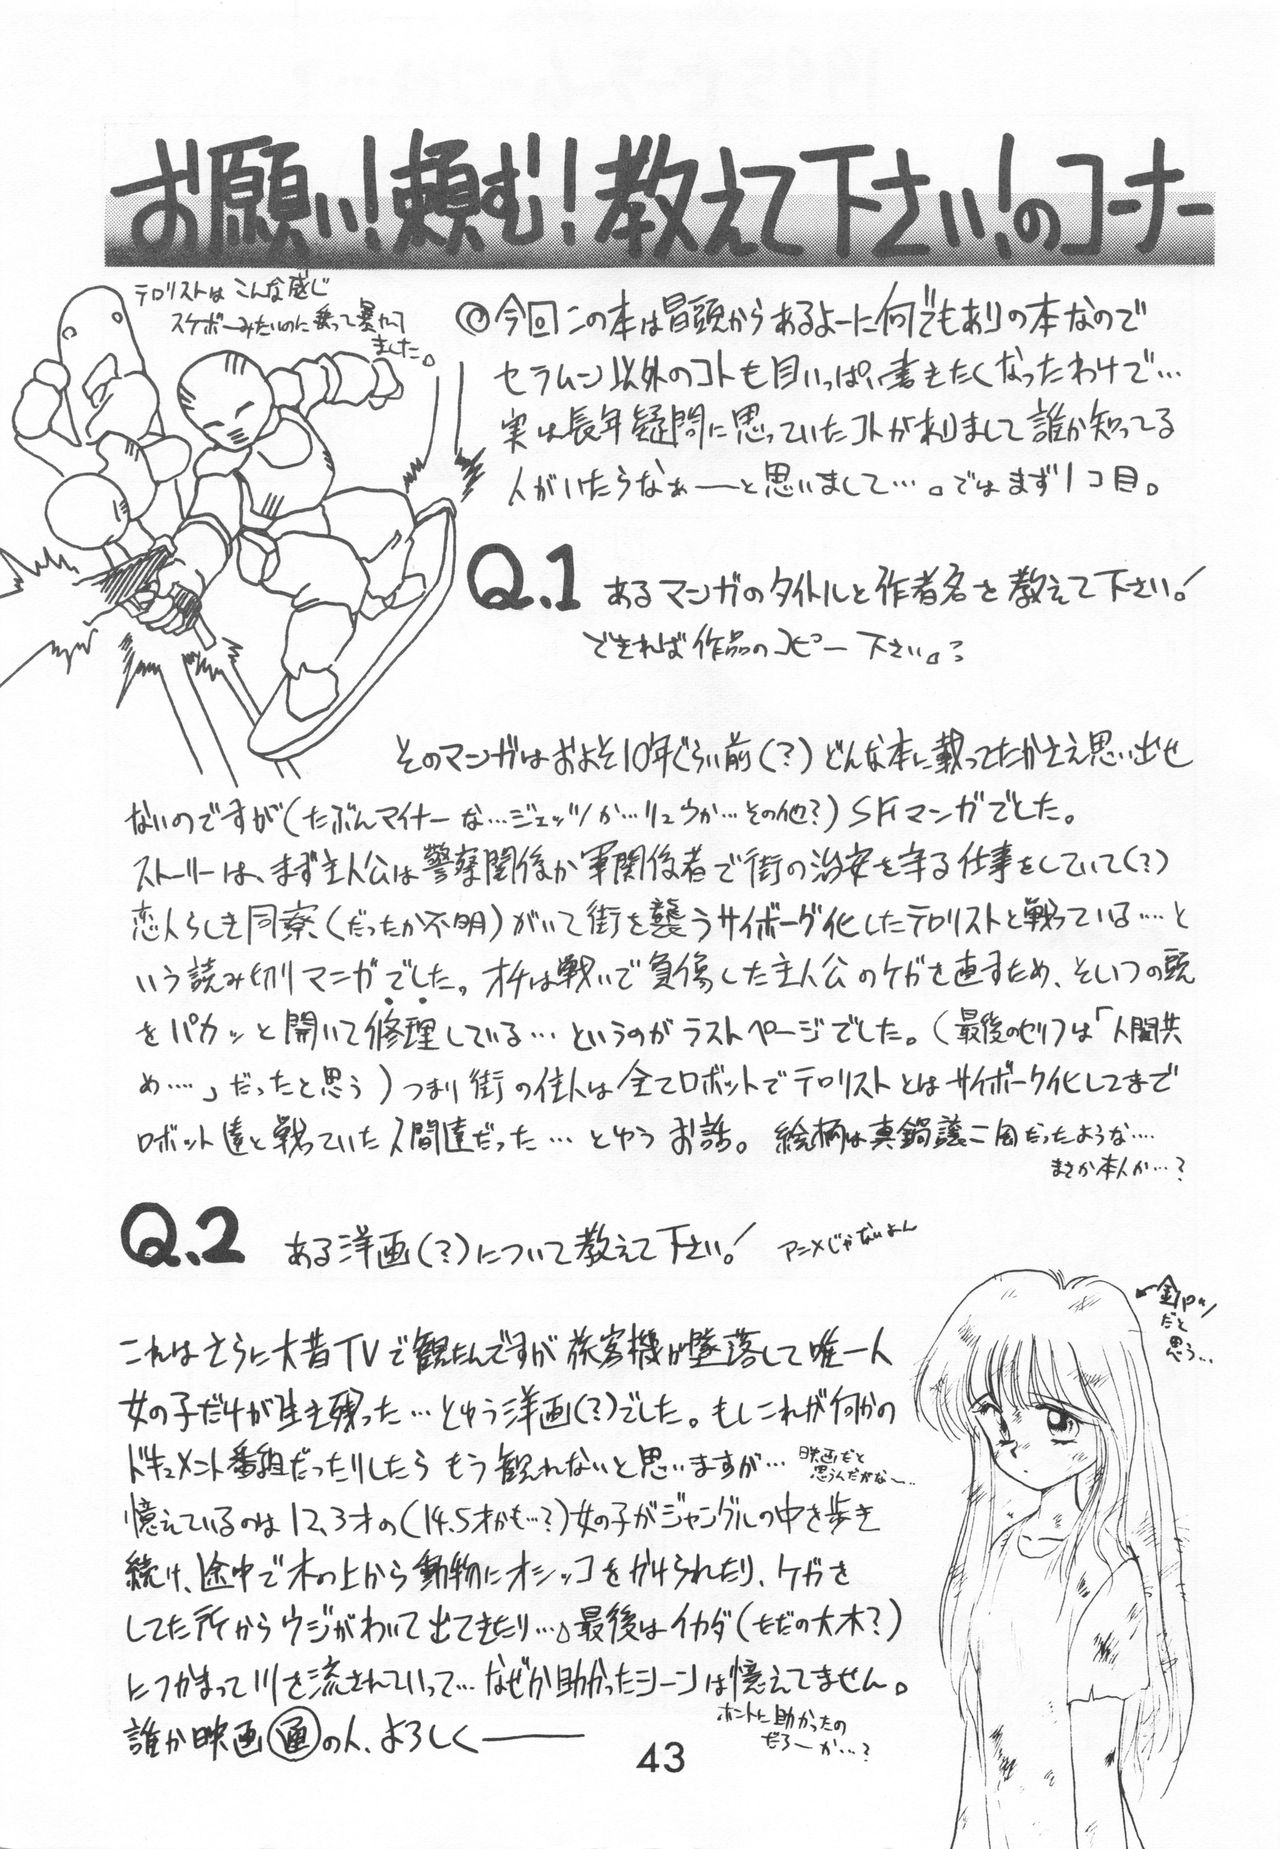 お願い!頼む!教えて下さい!のコーナー
テロリストはこんな感じ
スケボーみたいのに乗って暴れて
ました。
◎今回この本は冒頭からあるよーに何でもありの本なので
セラムン以外のコトも目いっぱい書きたくなったわけで…
実は長年疑問に思っていたコトがありまして誰か知ってる
人がいたらなぁーと思いまして…。ではまず1コ目。
Q.1 あるマンガのタイトルと作者名を教えて下さい!
できれば作品のコピー下さい。
そのマンガはおよそ10年ぐらい前(?)どんな本に載ってたかさえ思い出せ
ないのですが(たぶんマイナーな…ジェッツか…リュウか…その他?)SFマンガでした。
ストーリーは、まず主人公は警察関係か軍関係者で街の治安を守る仕事をしていて(?)
恋人らしき同寮(だったか不明)がいて街を襲うサイボーグ化したテロリストと戦っている…と
いう読み切りマンガでした。オチは戦いで負傷した主人公のケガを直すため、そいつの頭
をパカッと開いて修理している…というのがラストページでした。(最後のセリフは「人間共
め…。」だったと思う)つまり街の住人は全てロボットでテロリストとはサイボーグ化してまで
ロボット達と戦っていた人間達だった…とゆうお話。絵柄は真鍋譲二風だったような…
まさか本人か…?
Q.2 ある洋画(?)について教えて下さい! アニメじゃないよん
←金パツ
だと
思う…
これはさらに大昔TVで観たんですが旅客機が墜落して唯一人
女の子だけが生き残った…とゆう洋画(?)でした。もしこれが何かの
ドキュメント番組だったりしたらもう観れないと思いますが…
映画だと
思うんだがなー…
憶えているのは12,3才の(14.5才かも…?)女の子がジャングルの中を歩き
続け、途中で木の上から動物にオシッコをかけられたり、ケガを
してた所からウジがわいて出てきたり…。最後はイカダ(ただの大木?)
につかまって川を流されていって…なぜか助かったシーンは憶えてません。
ホントに助かったの
だろーか…?
誰か映画通の人、よろしくーー
43